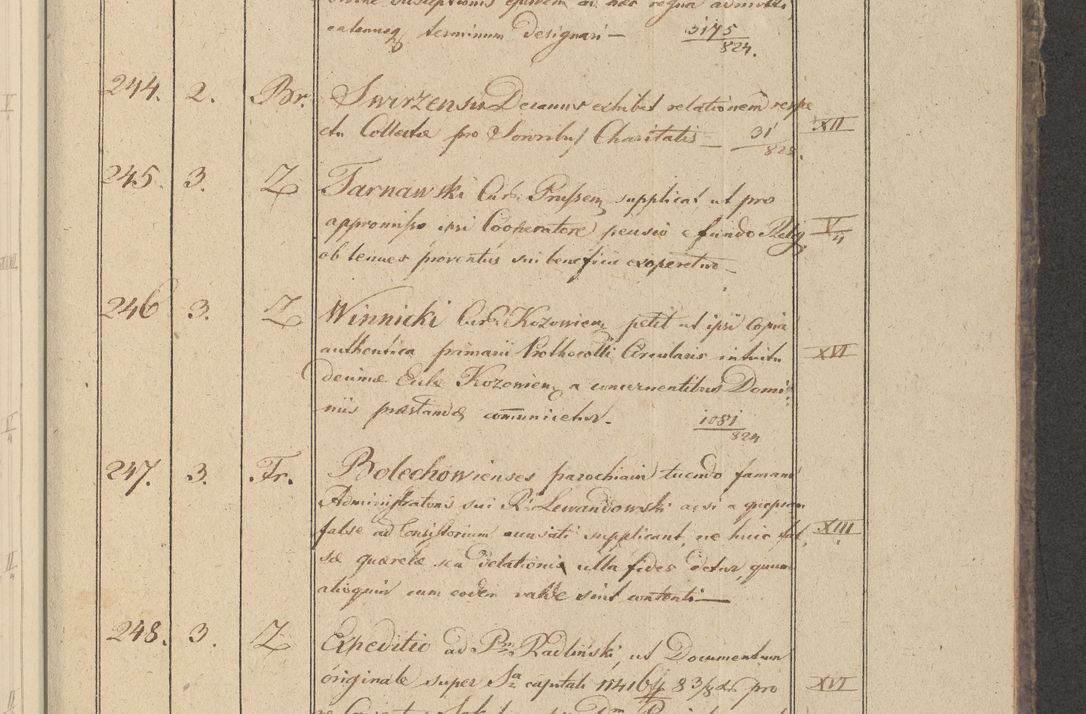 terminum designari — 5175/824.
244. 2. Br. Swirzensis Decanus exhibet relationem respe
ctu Collectae pro Sororibus Charitatis — 31/825. XII
245. 3. Z Tarnawski Cur. Prussien supplicat ut pro
appromisso ipsi Cooperatore pensio e fundo Relig. V/4
ob tenues proventus sui beneficii exoperetur —
246. 3. Z Winnicki Cur. Kozowien petit ut ipsi copia
authentica primarii Prothocolli Circularis intuitu XVI
decimae Eccle Kozowien a concernentibus Domi-
niis praestandae communicetur. 1081/824
247. 3. Fr. Bolechowienses parochiani tuendo famam
Administratoris sui R. Lewandowski acsi a quopiam
false ad Consistorium accusati supplicant, ne huic fal XIII
sae querelae seu delationis ulla fides detur, quum
alioquin cum eodem valde sint contenti —
248. 3. Z Expeditio ad Radliński, ut Documentum
originale super Sa capitali pro XVI